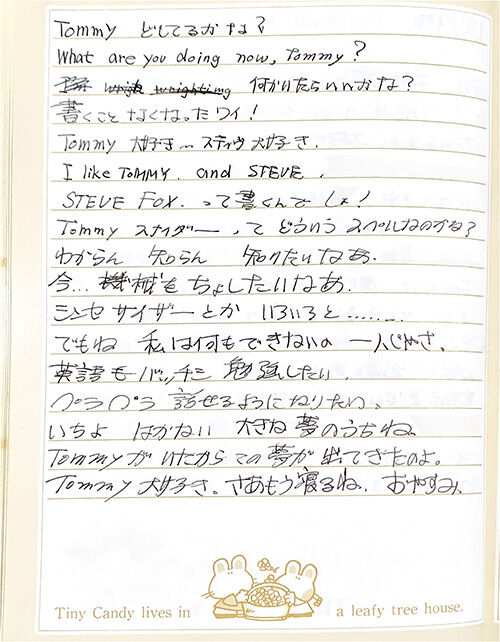 Tommy どしてるかなぁ?
What are you doing now, Tommy?
wrighting 何かいたらいいかな?
書くことなくなったワイ!
Tommy 大好き… スティヴ 大好き.
I like TOMMY. and STEVE.
STEVE FOX. って書くんでしょ!
Tommy スナイダー って どういう スペルなのかな?
わからん 知らん 知りたいなあ.
今… 機械を ちょしたいなあ.
シンセサイザーとか いろいろと........
でもね 私は何もできないの 一人じゃさ.
英語モーバッチシ 勉強したい.
ペラペラ 話せるようになりたい。
いちよ はかない 大きな夢のうちね.
Tommyがいたからこの夢が出てきたのよ。
Tommy 大好き。さあもう寝るね. おやすみ.
Tiny Candy lives in a leafy tree house.